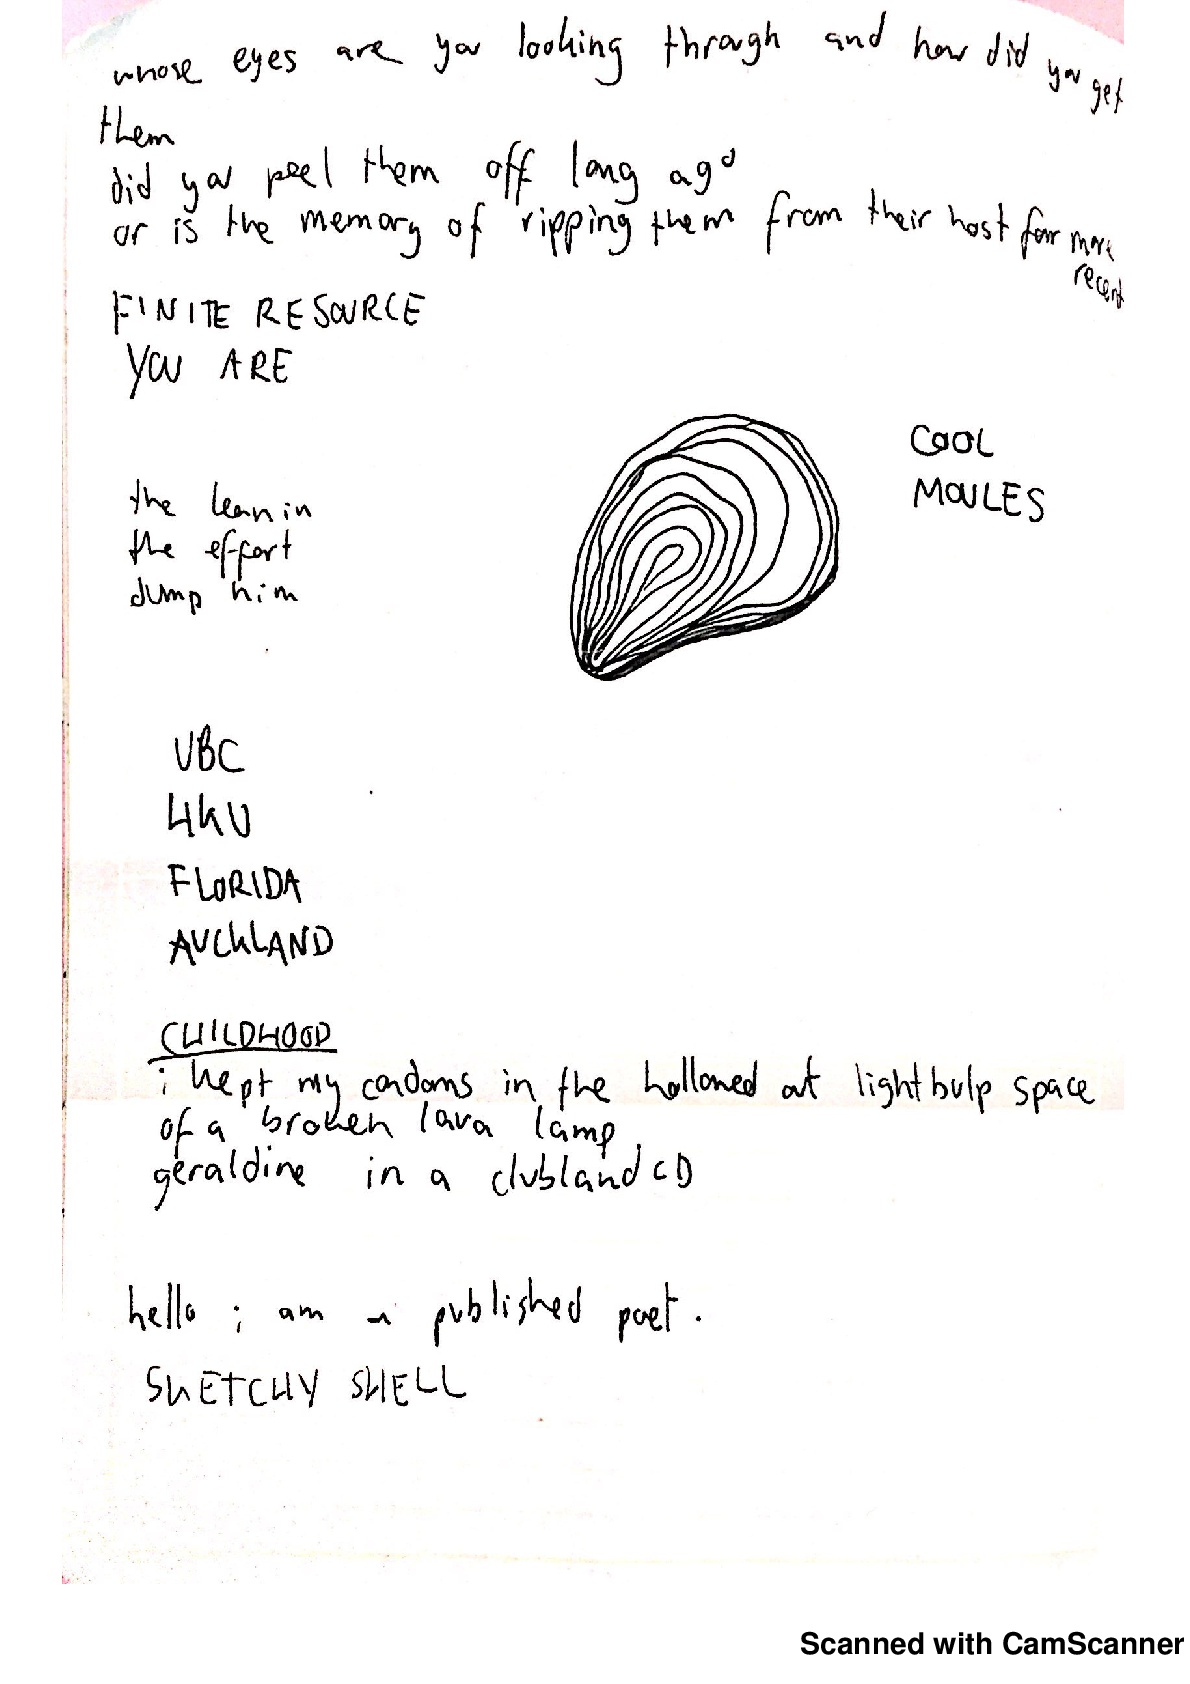 whose eyes are you looking through and how did you get
them
did you peel them off long ago
or is the memory of ripping them from their host far more
recent
FINITE RESOURCE
YOU ARE
COOL
MOULES
the lean in
the effort
dump him
UBC
HKU
FLORIDA
AUCKLAND
CHILDHOOD
i kept my condoms in the hollowed out lightbulp space
of a broken lava lamp
geraldine in a clubland CD
hello i am a published poet.
SKETCHY SHELL
Scanned with CamScanner